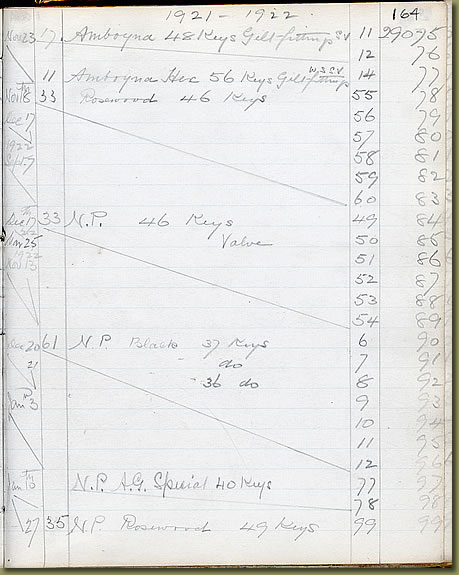 1921 - 1922. 164
Nov 23 17 Amboyna 48 Keys Gilt fittings SV 11 29075
12 76
11 Amboyna Hex 56 Keys Gilt fittings W.S.S.V 14 77
Nov 18 33 Rosewood 46 Keys 55 78
Dec 7 56 79
57 80
1922 58 81
59 82
60 83
Dec 17 33 N.P. 46 Keys 49 84
Jan 25 Valve 50 85
1922 51 86
Nov 13 52 87
53 88
54 89
Dec 20 61 N.P. Black 37 Keys 6 90
21 do 7 91
36 do 8 92
Jan 3 9 93
10 94
11 95
12 96
Jan N.P. A.G. Special 40 Keys 77 97
78 98
27 35 N.P. Rosewood 49 Keys 99 99